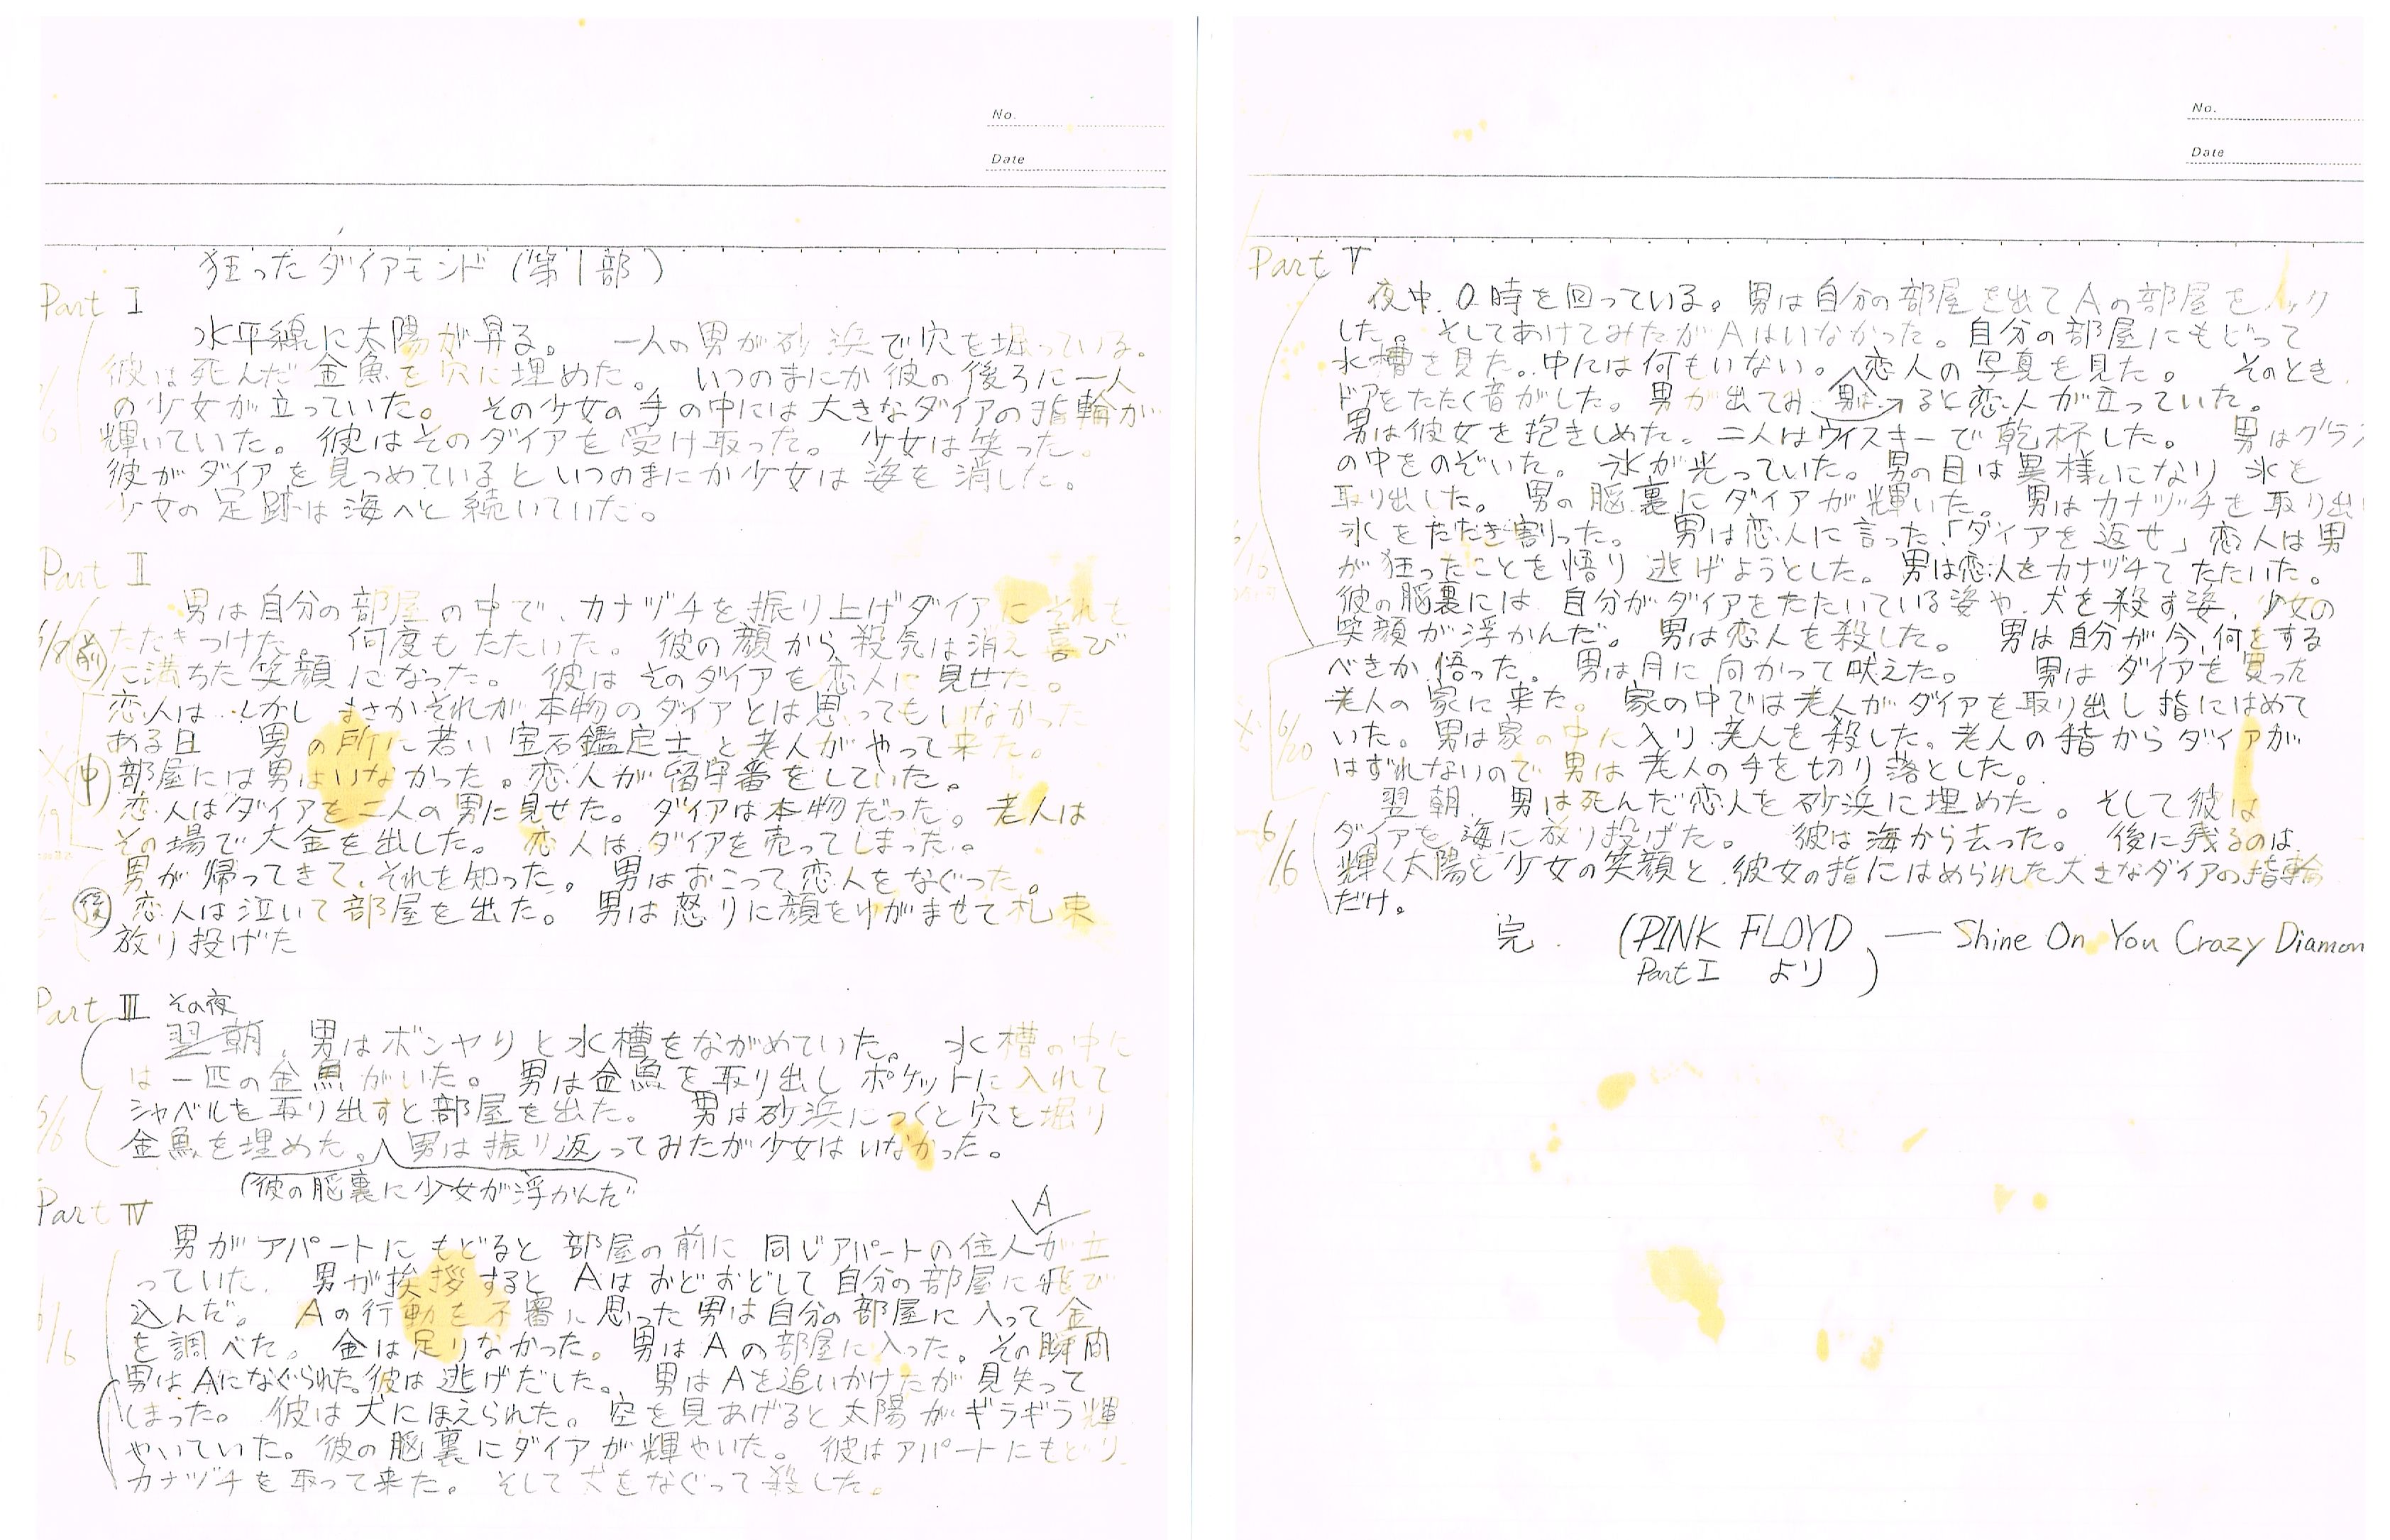 No.
Date
狂ったダイアモンド(第1部)
Part I
水平線に太陽が昇る。 一人の男が砂浜で穴を堀っている。
彼は死んだ金魚を穴に埋めた。 いつのまにか彼の後ろに一人
の少女が立っていた。 その少女の手の中には大きなダイアの指輪が
輝いていた。 彼はそのダイアを受け取った。 少女は笑った。
彼がダイアを見つめているといつのまにか少女は姿を消した。
少女の足跡は海へと続いていた。
Part II
男は自分の部屋の中で、カナヅチを振り上げダイアにそれを
6/8 前 たたきつけた。 何度もたたいた。 彼の顔から殺気は消え喜び
に満ちた笑顔になった。 彼はそのダイアを恋人に見せた。
恋人は、しかし まさかそれが本物のダイアとは思ってもいなかった
ある日 男の所に若い宝石鑑定士と老人がやって来た。
中 部屋には男はいなかった。恋人が留守番をしていた。
恋人はダイアを二人の男に見せた。ダイアは本物だった。老人は
その場で大金を出した。 恋人はダイアを売ってしまった。
男が帰ってきて、それを知った。男はおこって恋人をなぐった。
後 恋人は泣いて部屋を出た。 男は怒りに顔をゆがませて札束
放り投げた
Part III その夜
翌朝、男はボンヤリと水槽をながめていた。 水槽の中に
は一匹の金魚がいた。 男は金魚を取り出しポケットに入れて
シャベルを取り出すと部屋を出た。 男は砂浜につくと穴を堀り
6/6
金魚を埋めた。男は振り返ってみたが少女はいなかった。
(彼の脳裏に少女が浮かんだ
Part IV
A
男がアパートにもどると部屋の前に 同じアパートの住人が立
っていた。 男が挨拶すると Aはおどおどして自分の部屋に飛び
込んだ。 Aの行動を不審に思った男は自分の部屋に入って金
6/6
を調べた。 金は足りなかった。 男はAの部屋に入った。その瞬間
男はAになぐられた。彼は逃げだした。 男はAを追いかけたが見失って
しまった。 彼は犬にほえられた。空を見あげると太陽がギラギラ輝
やいていた。彼の脳裏にダイアが輝やいた。 彼はアパートにもどり
カナヅチを取って来た。 そして犬をなぐって殺した。
No.
Date
Part V
夜中、0時を回っている。男は自分の部屋を出てAの部屋をノック
した。 そしてあけてみたがAはいなかった。自分の部屋にもどって
水槽を見た。中には何もいない。 恋人の写真を見た。 そのとき、
ドアをたたく音がした。男が出てみ 男は ると恋人が立っていた。
男は彼女を抱きしめた。二人はウイスキーで乾杯した。 男はグラス
の中をのぞいた。 氷が光っていた。男の目は異様いになり 氷を
取り出した。 男の脳裏にダイアが輝いた。 男はカナヅチを取り出
氷をたたき割った。 男は恋人に言った「ダイアを返せ」恋人は男
が狂ったことを悟り 逃げようとした。男は恋人をカナヅチてたたいた。
彼の脳裏には、自分がダイアをたたいている姿や、犬を殺す姿、少女の
笑顔が浮かんだ。 男は恋人を殺した。 男は自分が今、何をする
べきか悟った。 男は月に向かって吠えた。 男はダイアを買った
老人の家に来た。 家の中では老人がダイアを取り出し指にはめて
6/20
いた。男は家の中に入り、老人を殺した。老人の指からダイアが
はずれないので男は老人の手を切り落とした。
翌朝、男は死んだ恋人を砂浜に埋めた。そして彼は
6/6
ダイアを海に放り投げた。 彼は海から去った。 後に残るのは、
輝く太陽と少女の笑顔と、彼女の指にはめられた大きなダイアの指輪
だけ。
完. (PINK FLOYD — Shine On You Crazy Diamon
Part I より )